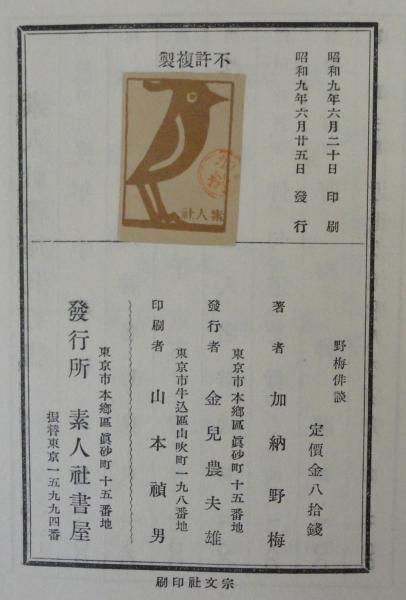 不許複製
昭和九年六月二十日 印刷
昭和九年六月廿五日 發行
素人社
野梅俳談
定價金八拾錢
著者 加納野梅
東京市本鄕區眞砂町十五番地
發行者 金兒農夫雄
東京市牛込區山吹町一九八番地
印刷者 山本禎男
東京市本鄕區眞砂町十五番地
發行所 素人社書屋
振替東京一五九九四番
宗文社印刷